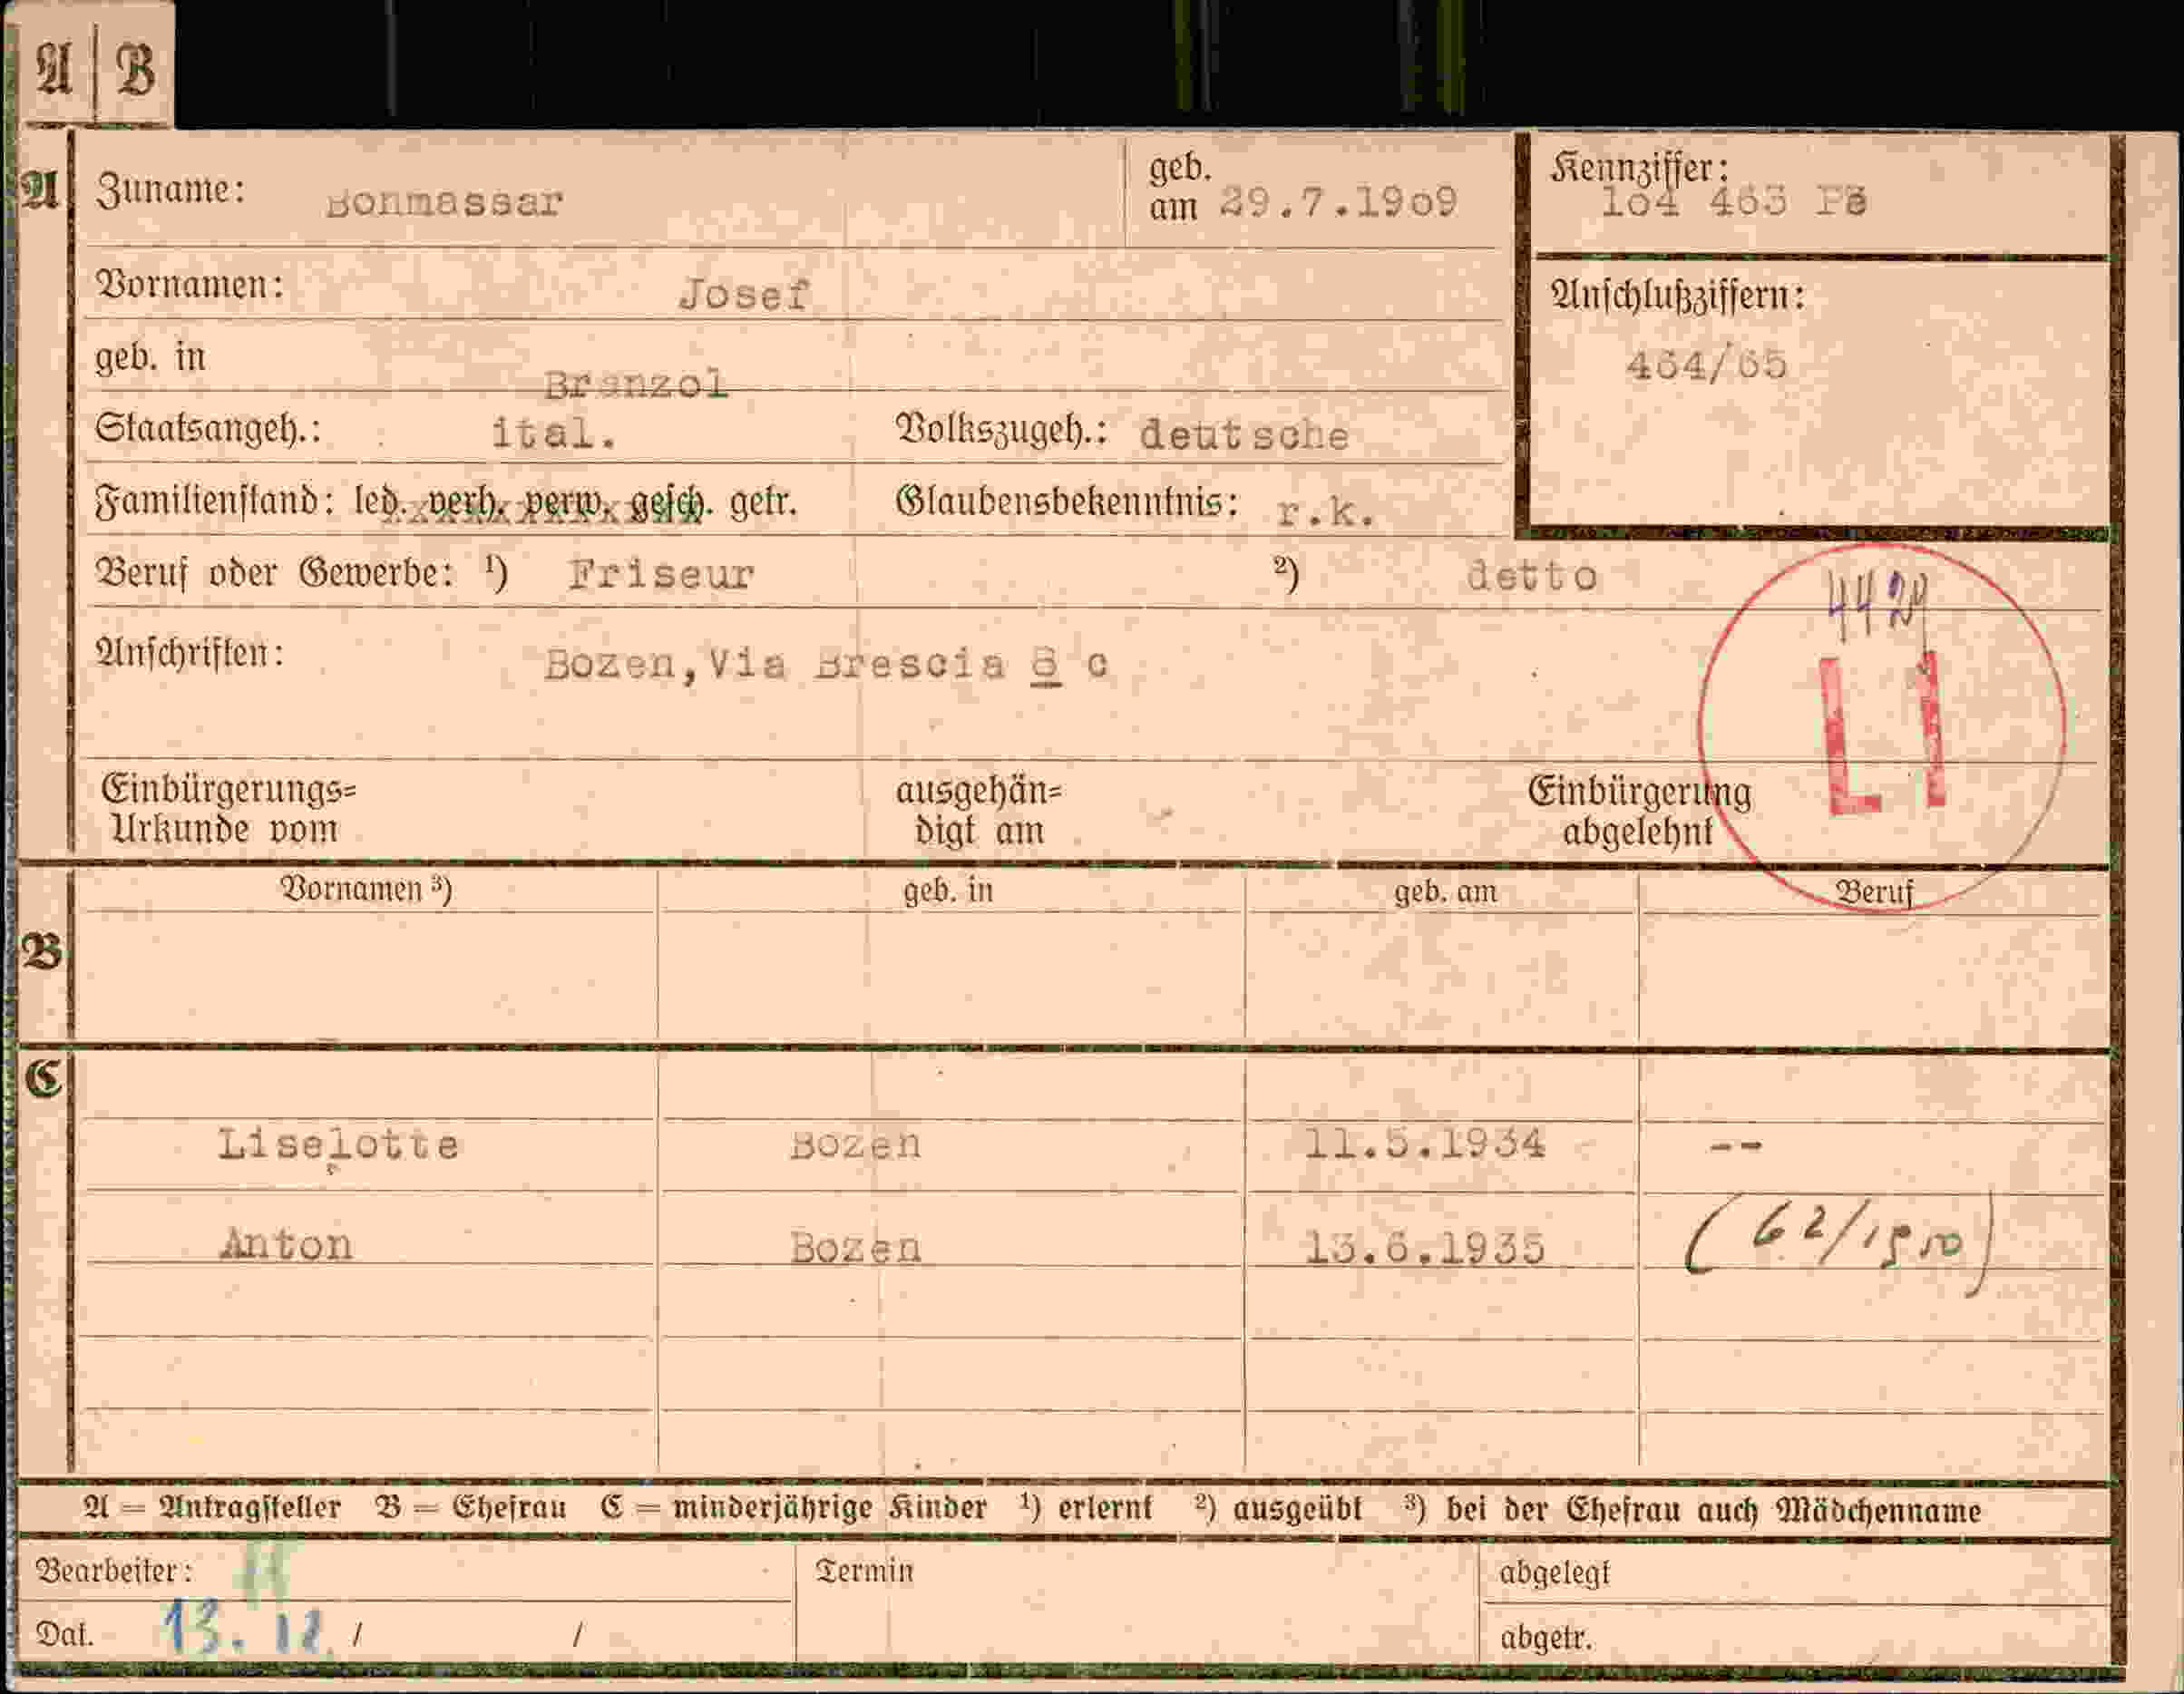 A | B
A Zuname: Bonmassar geb. am 29.7.1909 Kennziffer: 104 463
Vornamen: Josef Anschlußziffern:
geb. in Branzol 464/65
Staatsangeh.: ital. Volkszugeh.: deutsche
Familienstand: led. verh. verw. gesch. getr. Glaubensbekenntnis: r.k.
Beruf oder Gewerbe: ¹) Friseur ²) detto
Anschriften: Bozen, Via Brescia 8 c
LI
Einbürgerungs= ausgehän= Einbürgerung
Urkunde vom digt am abgelehnt
Vornamen ³) geb. in geb. am Beruf
B
C
Liselotte Bozen 11.5.1934 --
Anton Bozen 13.6.1935 (62/1950)
A = Antragsteller B = Ehefrau C = minderjährige Kinder ¹) erlernt ²) ausgeübt ³) bei der Ehefrau auch Mädchenname
Bearbeiter: Termin abgelegt
Dat. 13.12. / / abgetr.